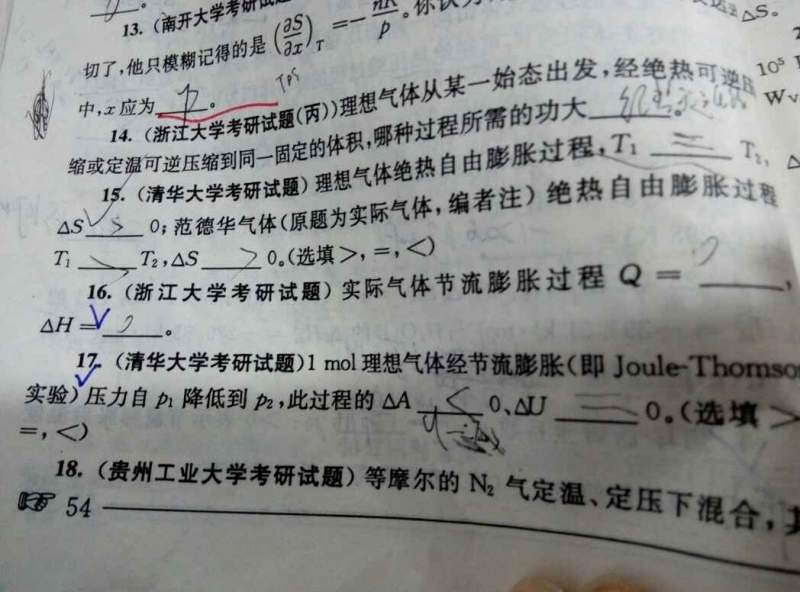 13. (南开大学考研试题
切了,他只模糊记得的是 (∂S/∂x)_T = −nR/p。你认为
中,x应为 p 。
14. (浙江大学考研试题(丙))理想气体从某一始态出发,经绝热可逆压
缩或定温可逆压缩到同一固定的体积,哪种过程所需的功大
15. (清华大学考研试题) 理想气体绝热自由膨胀过程,T₁ = T₂,
ΔS > 0;范德华气体(原题为实际气体,编者注) 绝热自由膨胀过程
T₁ > T₂,ΔS > 0。(选填>,=,<)
16. (浙江大学考研试题) 实际气体节流膨胀过程 Q = 0 ,
ΔH = 0 。
17. (清华大学考研试题)1 mol 理想气体经节流膨胀(即 Joule-Thomso
实验)压力自 p₁ 降低到 p₂,此过程的 ΔA < 0、ΔU = 0。(选填 >
=,<)
18. (贵州工业大学考研试题) 等摩尔的 N₂ 气定温、定压下混合,
54
ΔS。
10⁵